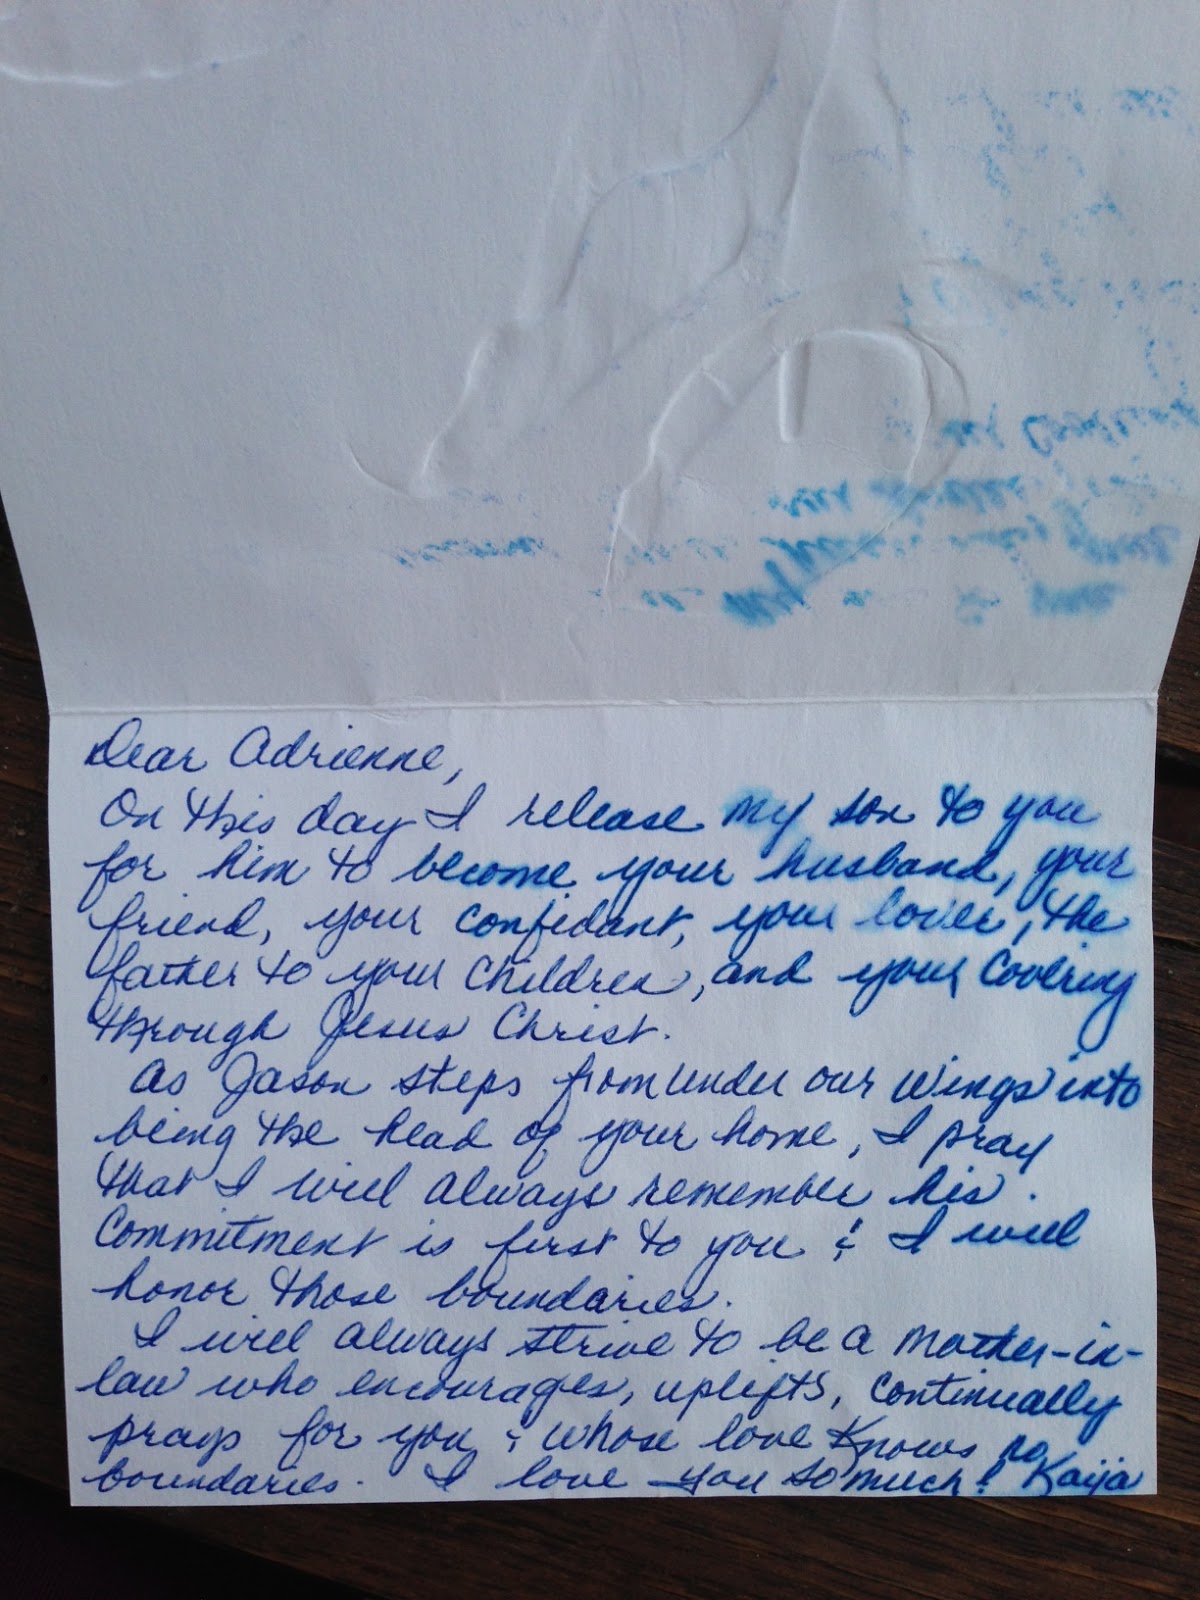 Dear Adrienne,
On this day I release my son to you
for him to become your husband, your
friend, your confidant, your lover, the
father to your children, and your covering
through Jesus Christ.
As Jason steps from under our wings into
being the head of your home, I pray
that I will always remember his
commitment is first to you & I will
honor those boundaries.
I will always strive to be a mother-in-
law who encourages, uplifts, continually
prays for you & whose love knows no
boundaries. I love you so much! Kaija